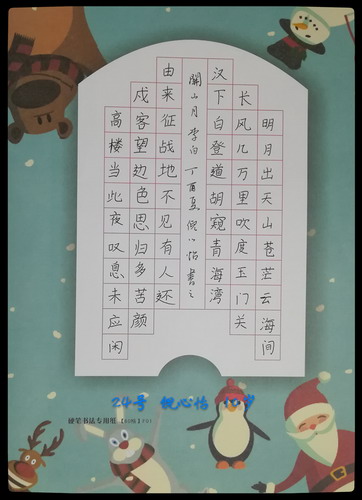 明月出天山苍茫云海间
长风几万里吹度玉门关
汉下白登道胡窥青海湾
關山月 李白 丁酉夏 倪心怡 書之
由来征战地不见有人还
戍客望边色思归多苦颜
高楼当此夜叹息未应闲
24号 倪心怡 10岁
硬笔书法专用纸